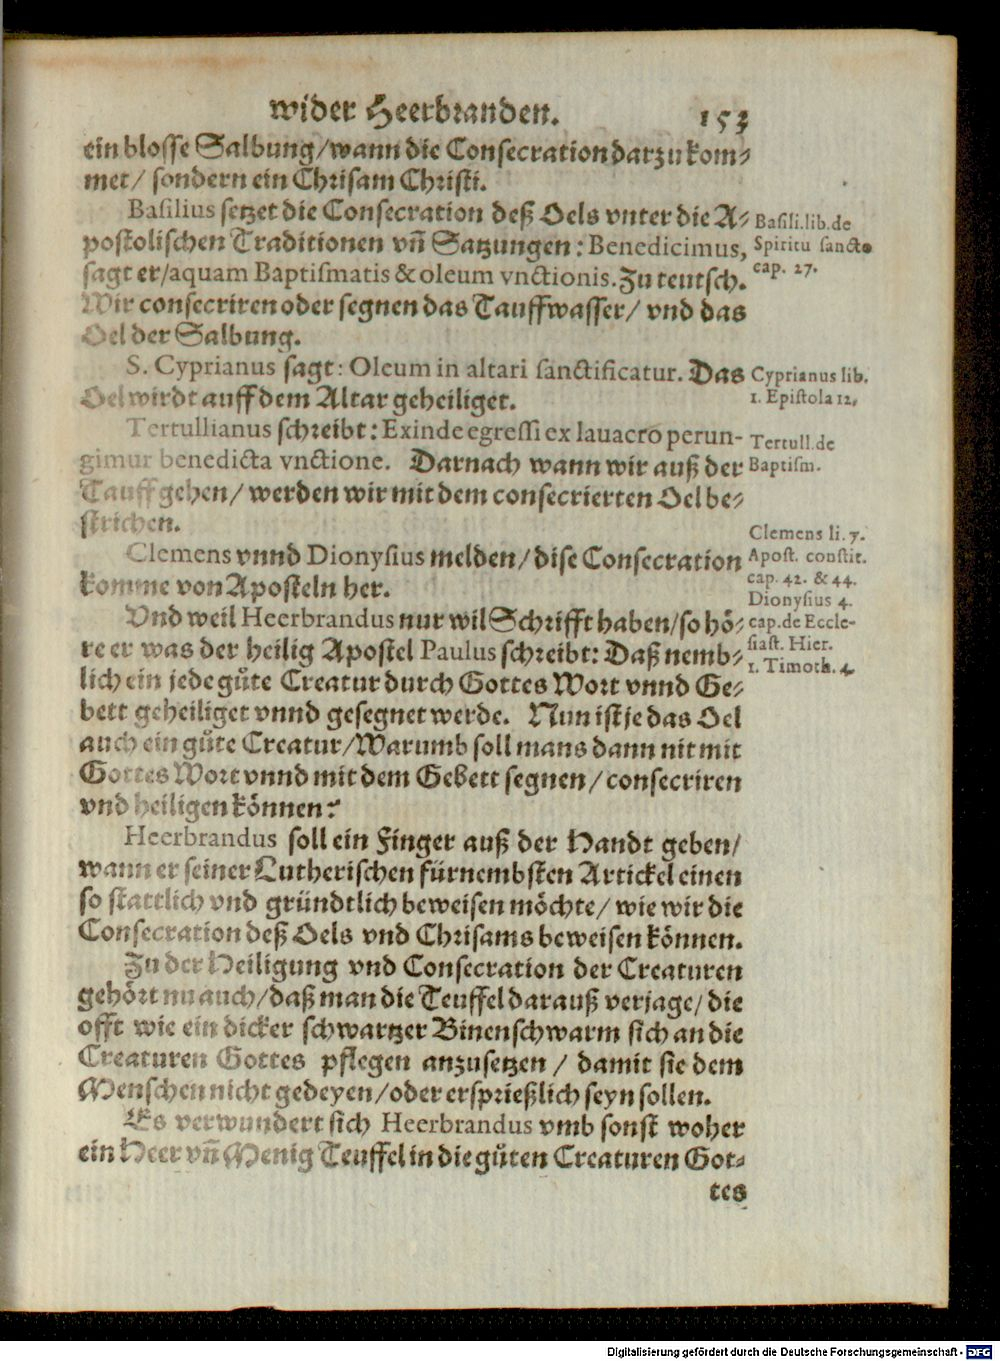 wider Heerbranden. 153
ein blosse Salbung/wann die Consecration darzu kom⸗
met/ sondern ein Chrisam Christi.
Basilius setzet die Consecration deß Oels vnter die A⸗
postolischen Traditionen vñ Satzungen: Benedicimus,
sagt er/aquam Baptismatis & oleum vnctionis. Zu teutsch.
Wir consecriren oder segnen das Tauffwasser/ vnd das
Oel der Salbung.
Basili. lib. de
Spiritu sancto
cap. 27.
S. Cyprianus sagt: Oleum in altari sanctificatur. Das
Oel wirdt auff dem Altar geheiliget.
Cyprianus lib.
1. Epistola 12.
Tertullianus schreibt: Exinde egressi ex lauacro perun-
gimur benedicta vnctione. Darnach wann wir auß der
Tauff gehen/ werden wir mit dem consecrierten Oel be⸗
strichen.
Tertull. de
Baptism.
Clemens vnnd Dionysius melden/ dise Consecration
komme von Aposteln her.
Clemens li. 7.
Apost. constit.
cap. 42. & 44.
Dionysius 4.
cap. de Eccle-
siast. Hier.
1. Timoth. 4.
Vnd weil Heerbrandus nur wil Schrifft haben/so hö⸗
re er was der heilig Apostel Paulus schreibt: Daß nemb⸗
lich ein jede gůte Creatur durch Gottes Wort vnnd Ge⸗
bett geheiliget vnnd gesegnet werde. Nun ist je das Oel
auch ein gůte Creatur/Warumb soll mans dann nit mit
Gottes Wort vnnd mit dem Gebett segnen/ consecriren
vnd heiligen können?
Heerbrandus soll ein Finger auß der Handt geben/
wann er seiner Lutherischen fürnembsten Artickel einen
so stattlich vnd gründtlich beweisen möchte/ wie wir die
Consecration deß Oels vnd Chrisams beweisen können.
Zu der Heiligung vnd Consecration der Creaturen
gehört nu auch/daß man die Teuffel darauß verjage/ die
offt wie ein dicker schwartzer Binenschwarm sich an die
Creaturen Gottes pflegen anzusetzen / damit sie dem
Menschen nicht gedeyen/oder ersprießlich seyn sollen.
Es verwundert sich Heerbrandus vmb sonst woher
ein Heer vñ Menig Teuffel in die gůten Creaturen Got⸗
tes
Digitalisierung gefördert durch die Deutsche Forschungsgemeinschaft - DFG